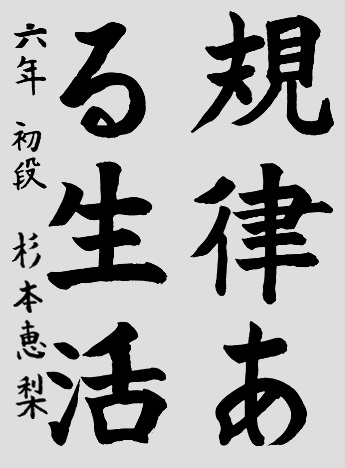 規律あ
る生活
六年 初段 杉本恵梨